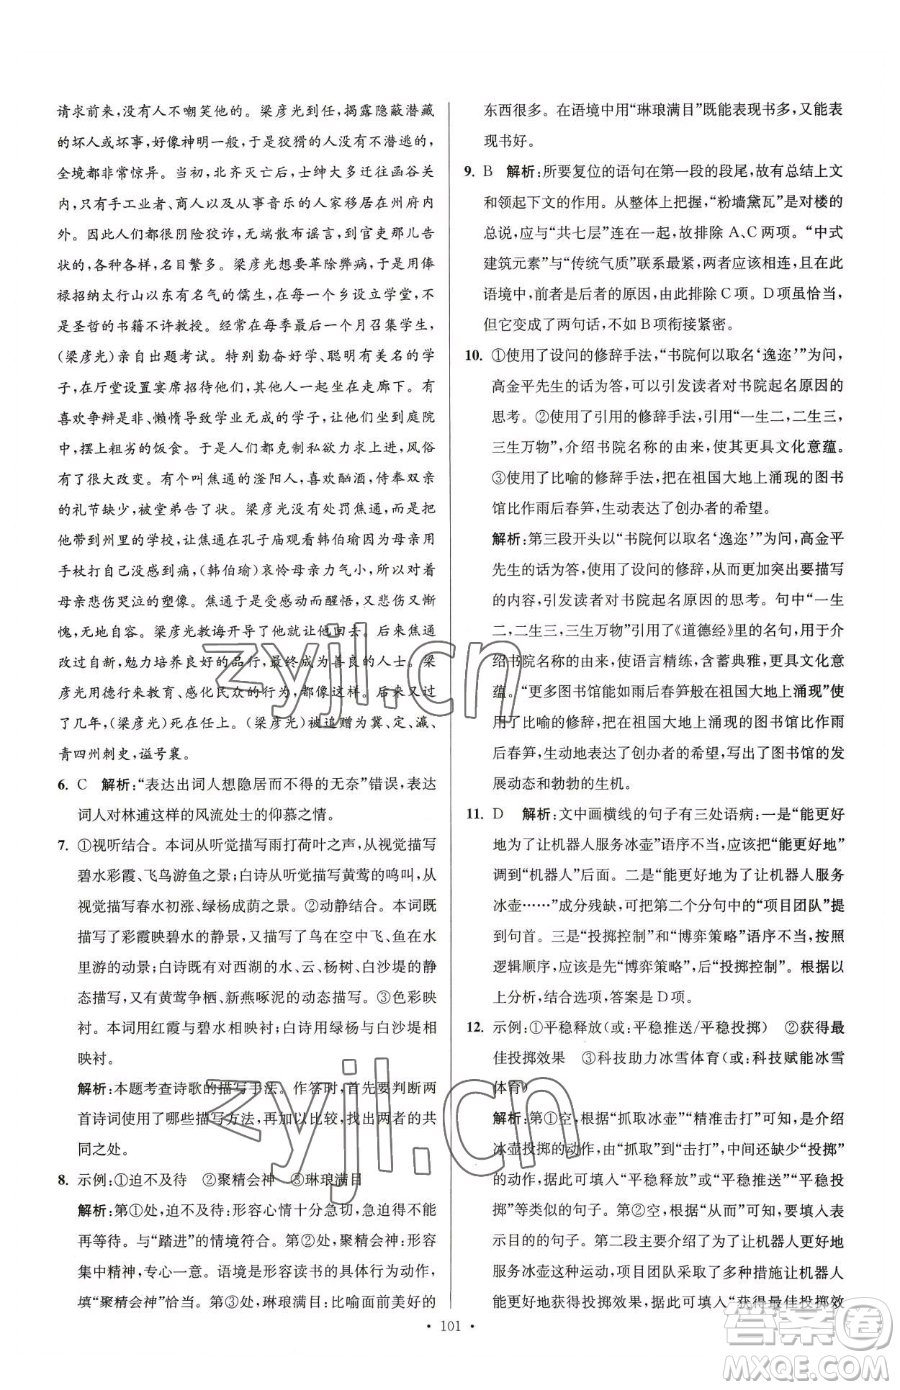 请求前来，没有人不嘲笑他的。梁彦光到任，揭露隐蔽潜藏
的坏人或坏事，好像神明一般，于是狡猾的人没有不潜逃的，
全境都非常惊异。当初，北齐灭亡后，士绅大多迁居函谷关
内，只有手工业者、商人以及从事音乐的人家移居在州府内
外。因此人们都很阴险狡诈，无端散布谣言，到官吏那儿告
状的，各种各样，名目繁多。梁彦光想要革除弊病，于是用俸
禄招纳太行山以东有名气的儒生，在每一个乡设立学堂，不
是圣哲的书籍不许教授。经常在每季最后一个月召集学生，
(梁彦光)亲自出题考试。特别勤奋好学、聪明有美名的学
子，在厅堂设置宴席招待他们，其余的学子坐在走廊下。有
喜欢争辩是非、懒惰导致学业无成的学子，让他们坐在庭院
中，摆上粗劣的饭食。于是人们都克制私欲力求上进，风俗
有了很大改变。有个叫焦通的滏阳人，喜欢酗酒，侍奉双亲
的礼节缺少，被堂弟告了状。梁彦光没有处罚焦通，而是将
他带到州里的学校，让焦通在孔子庙观看韩伯瑜因为母亲用
手杖打自己没感到痛，(韩伯瑜)哀怜母亲力气小，于是对着
母亲悲伤哭泣的塑像。焦通于是感动而醒悟，又悲伤又惭
愧，无地自容。梁彦光教诲开导了他就让他回去。后来焦通
改过自新，勉力培养良好的品行，最终成为善良的人士。梁
彦光用德行来教育、感化民众的行为，都像这样。后来又过
了几年，(梁彦光)死在任上。(梁彦光)被追赠为冀、定、瀛、
青四州刺史，谥号襄。
6. C 解析：“表达出词人想隐居而不得的无奈”错误，表达
词人对林逋这样的风流处士的仰慕之情。
7. ①视听结合。本词从听觉描写雨打荷叶之声，从视觉描
写碧水彩霞、飞鸟游鱼之景；白诗从听觉描写黄莺的鸣叫，从
视觉描写春水初涨、绿杨成荫之景。②动静结合。本词既
描写了彩霞映碧水的静景，又描写了鸟在空中飞、鱼在水
里游的动景；白诗既有对西湖的水、云、杨树、白沙堤的静
态描写，又有黄莺争栖、新燕啄泥的动态描写。③色彩映
衬。本词用红霞与碧水相映衬；白诗用绿杨与白沙堤相
映衬。
解析：本题考查诗歌的描写手法。作答时，首先要判断两
首诗词使用了哪些描写方法，再加以比较，找出两者的共
同之处。
8. 示例：①迫不及待 ②聚精会神 ③琳琅满目
解析：第①处，迫不及待：形容心情十分急切，或者是不能
再等待。与“踏进”的情境符合。第②处，聚精会神：形容
集中精神，专心一意。语境是形容读书的具体行为动作，
填“聚精会神”恰当。第③处，琳琅满目：比喻面前美好的
东西很多。在语境中用“琳琅满目”既能表现书多，又能表
现书好。
9. B 解析：所要复位的语句在第一段的段尾，故有总结上文
和领起下文的作用。从整体上把握，“粉墙黛瓦”是对楼的
总说，应与“共七层”连在一起，故排除A、C两项。“中式
建筑元素”与“传统气质”联系最紧，两者应该相连，且在此
语境中，前者是后者的原因，由此排除C项。D项虽恰当，
但它变成了两句话，不如B项衔接紧密。
10. ①使用了设问的修辞手法，“书院何以取名‘逸迩’”为问，
高金平先生的话为答，可以引发读者对书院起名原因的
思考。②使用了引用的修辞手法，引用“一生二，二生三，
三生万物”，介绍书院名称的由来，使其更具文化意蕴。
③使用了比喻的修辞手法，把在祖国大地上涌现的图书
馆比作雨后春笋，生动表达了创办者的希望。
解析：第三段开头以“书院何以取名‘逸迩’”为问，高金平
先生的话为答，使用了设问的修辞，由此突出主要描写
的内容，引发读者对书院起名原因的思考。句中“一生
二，二生三，三生万物”引用了《道德经》里的名句，用于介
绍书院名称的由来，使语言精练，含蓄典雅，更具文化意
蕴。“更多图书馆能如雨后春笋般在祖国大地上涌现”使
用了比喻的修辞，把在祖国大地上涌现的图书馆比作雨
后春笋，生动地表达了创办者的希望，写出了图书馆的发
展动态和勃勃的生机。
11. D 解析：文中画横线的句子有三处语病：一是“能更好
地为了让机器人服务冰壶”语序不当，应该把“能更好地”
调到“机器人”后面。二是“能更好地为了让机器人服务
冰壶……”成分残缺，可把第二个分句中的“项目团队”提
到句首。三是“投掷控制”和“博弈策略”语序不当，按照
逻辑顺序，应该先“博弈策略”，后“投掷控制”。根据以
上分析，结合选项，答案是D项。
12. 示例：①平稳释放(或：平稳推送/平稳投掷) ②获得最
佳投掷效果 ③科技助力冰雪体育(或：科技赋能冰雪
体育)
解析：第①空，根据“抓取冰壶”“精准击打”可知，是介绍
冰壶投掷的动作，由“抓取”到“击打”，中间还缺少“投掷”
的动作，据此可填入“平稳释放”“平稳推送”“平稳投
掷”等类似的句子。第②空，根据“以”可知，要填入表示
目的的句子。第二段主要介绍了为了让机器人更好地
服务冰壶这种运动，项目团队采取了多种措施让机器人
更好地获得投掷效果，据此可填入“获得最佳投掷效
• 101 •
zyjl.cn
zyjl.cn
答案圈
MXQE.COM